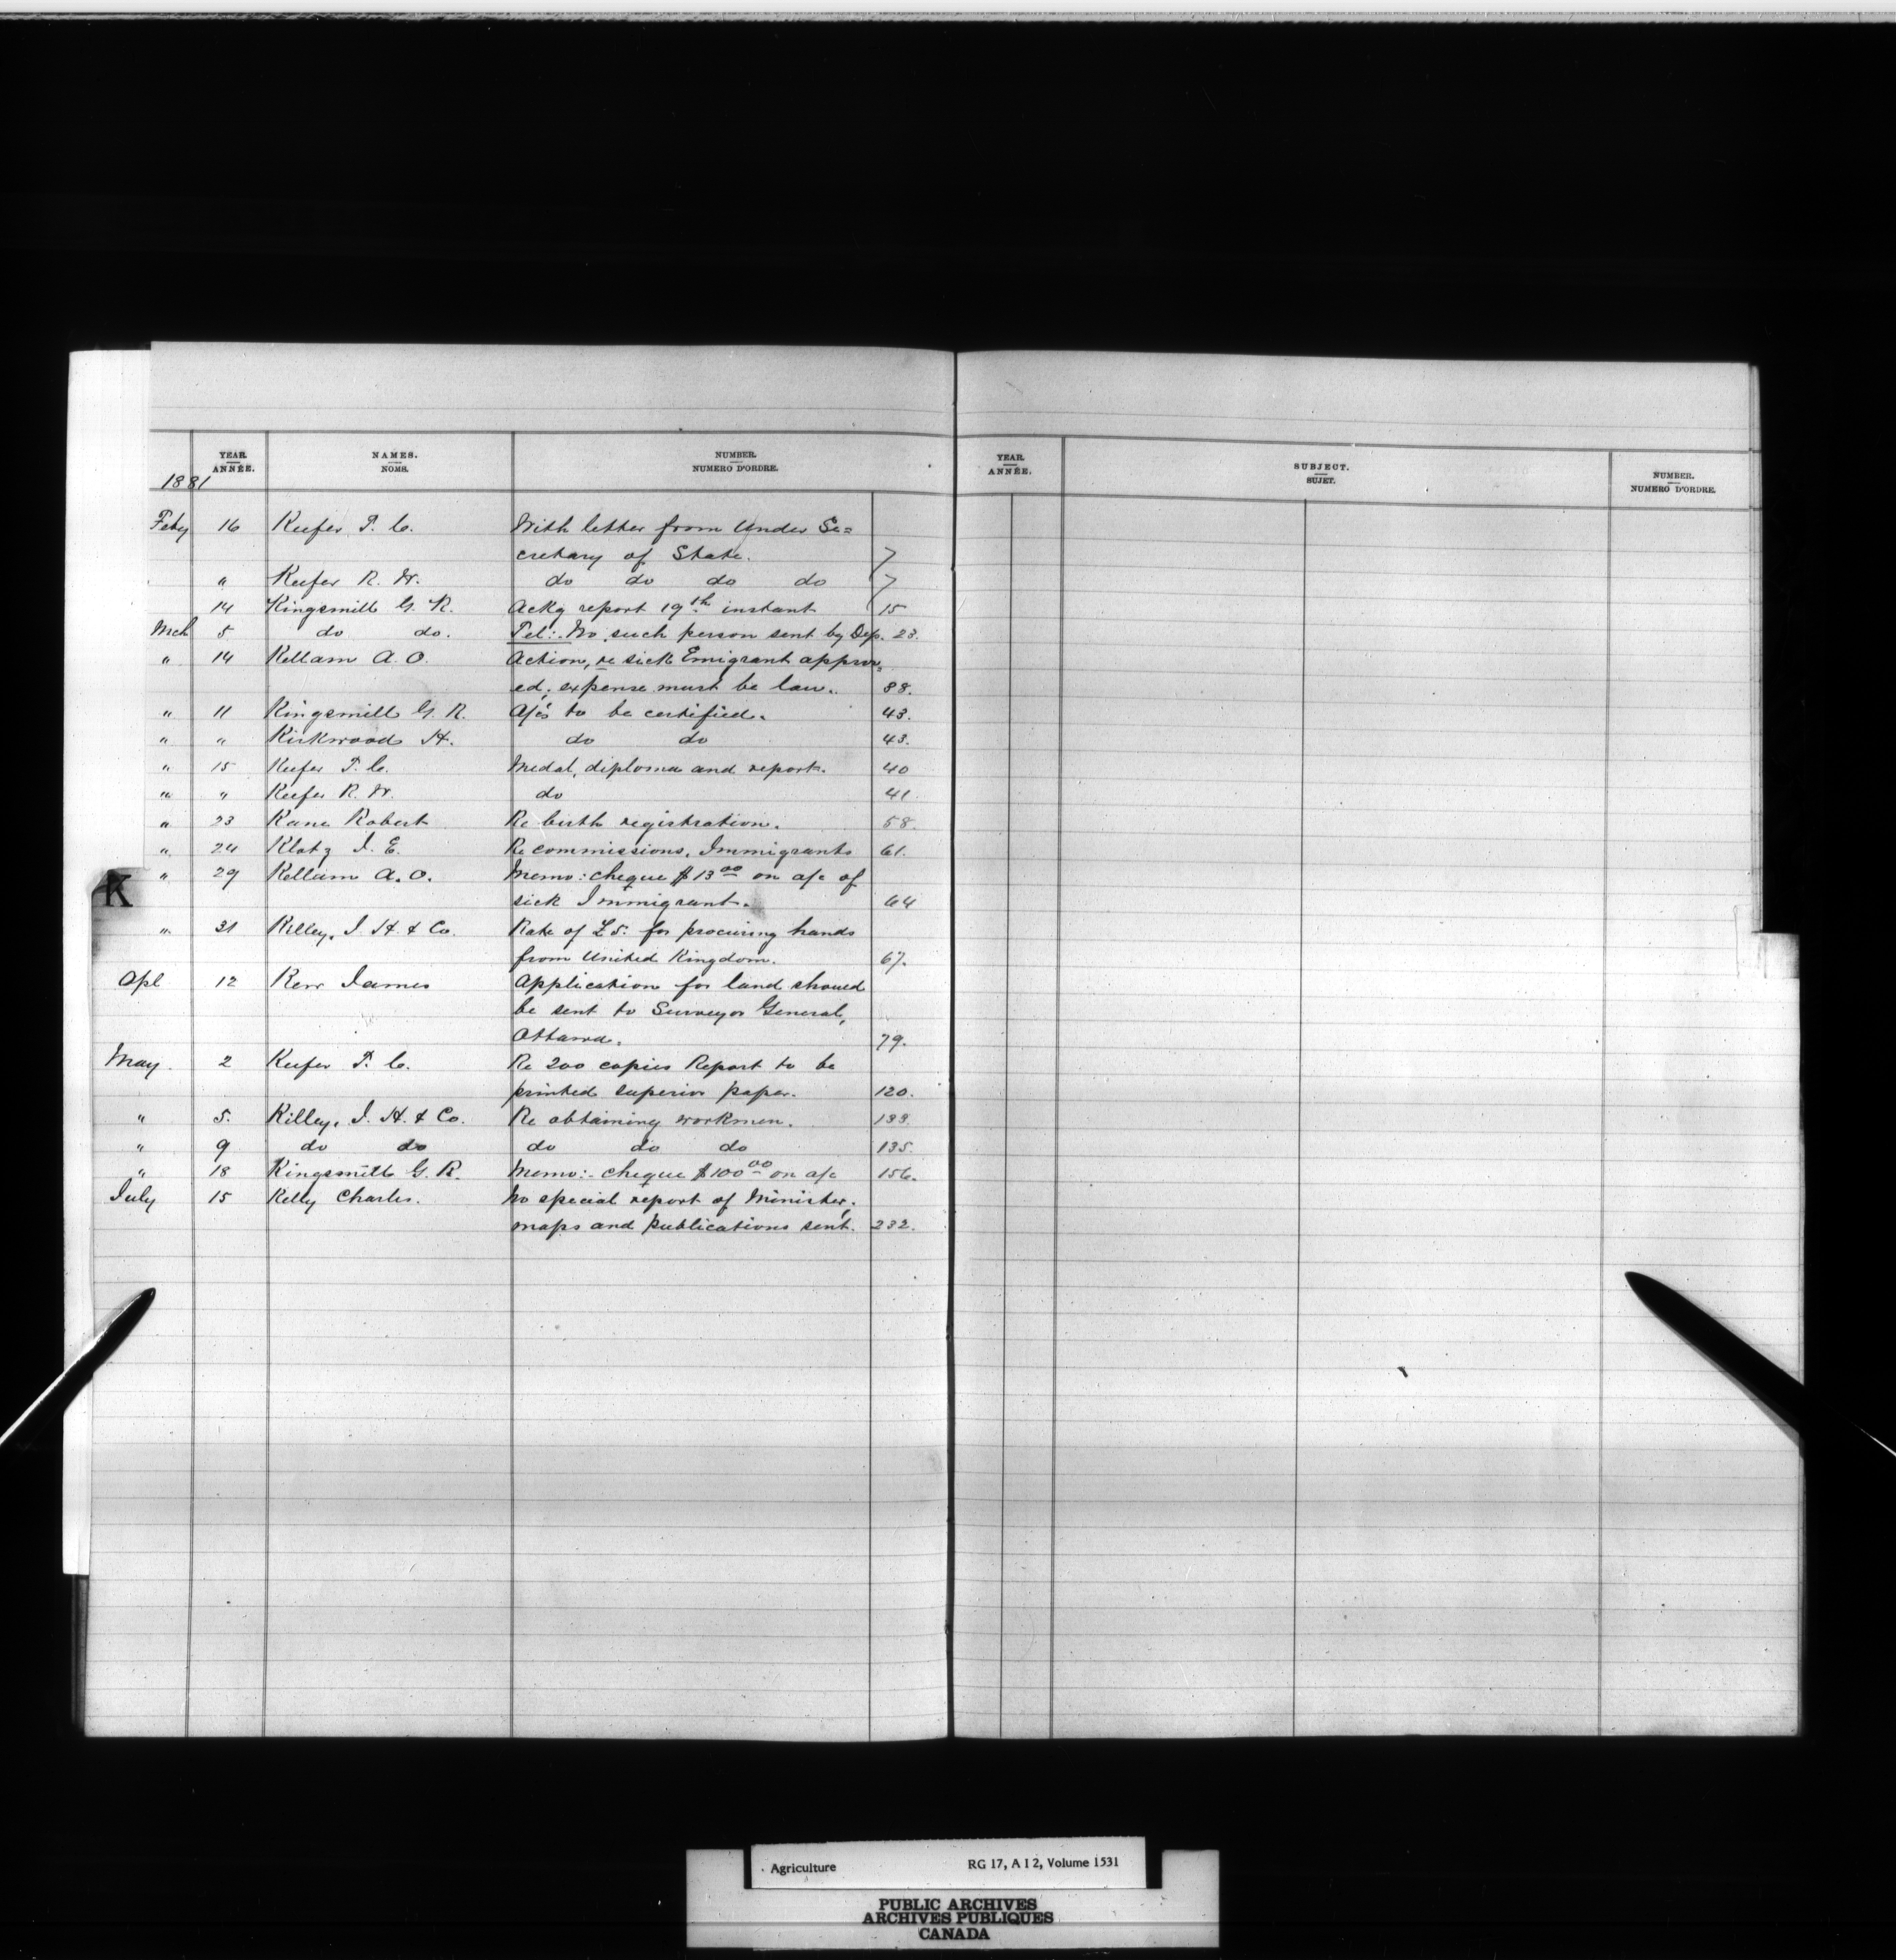 YEAR. NAMES. NUMBER. YEAR. SUBJECT. NUMBER.
ANNÉE. NOMS. NUMERO D'ORDRE. ANNÉE. SUJET. NUMERO D'ORDRE.
1881
Feby 16 Keefer T. C. With letter from Under Se=
cretary of State. 7
" Keefer R. W. do do do do 7
14 Kingsmill G. R. Ackg report 19th instant 15
Mch 5 do do. Tel:- No such person sent by Dep. 23.
" 14 Kellam A. O. Action, re sick Emigrant approv=
ed; expense must be law. 88.
" 11 Kingsmill G. R. A/cs to be certified. 43.
" " Kirkwood H. do do 43.
" 15 Keefer T. C. Medal, diploma and report. 40
" " Keefer R. W. do 41.
" 23 Kane Robert Re birth registration. 58.
" 24 Klotz I. E. Re commissions, Immigrants 61.
" 29 Kellam A. O. Memo: cheque $13.00 on a/c of
K
sick Immigrant. 64
" 31 Killey, I. H. & Co. Rate of £5: for procuring hands
from United Kingdom. 67.
Apl 12 Kerr James Application for land should
be sent to Surveyor General,
Ottawa. 79.
May 2 Keefer T. C. Re 200 copies Report to be
printed superior paper. 120.
" 5. Killey, I. H. & Co. Re obtaining workmen. 133.
" 9 do do do do do 135.
" 18 Kingsmill G. R. Memo:- cheque $100.00 on a/c 156.
July 15 Kelly Charles. No special report of Minister;
maps and publications sent. 232.
Agriculture RG 17, A I 2, Volume 1531
PUBLIC ARCHIVES
ARCHIVES PUBLIQUES
CANADA